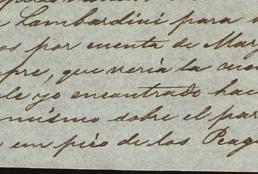 Lambardini para
por cuenta de Mar
pre, que vería la cuen
le yo encontrado hac
mismo sobre el par
en pico de los Peag